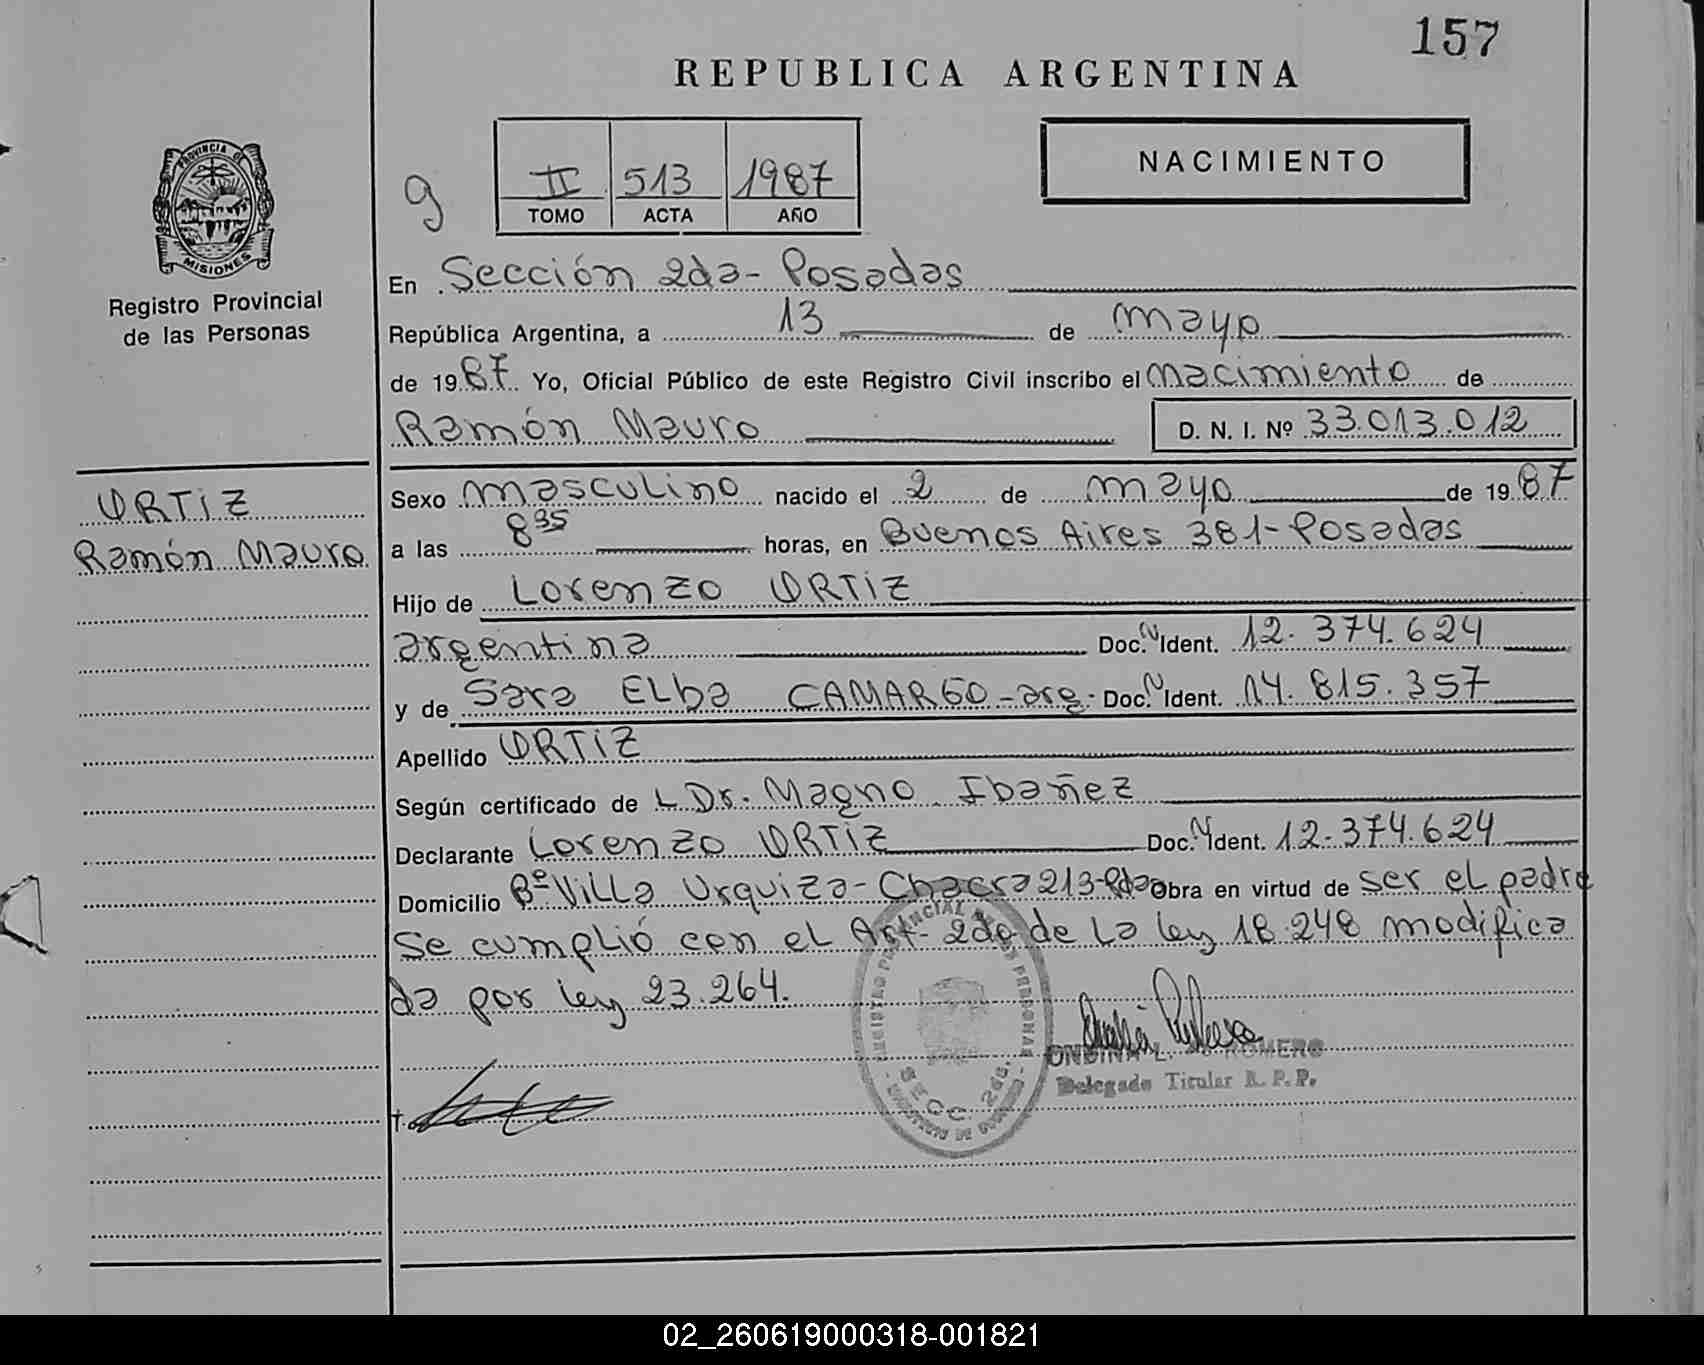 157
REPUBLICA ARGENTINA
PROVINCIA DE
MISIONES
Registro Provincial
de las Personas
g
II 513 1987
TOMO ACTA AÑO
NACIMIENTO
En Sección 2da- Posadas
República Argentina, a 13 de mayo
de 1987 Yo, Oficial Público de este Registro Civil inscribo el nacimiento de
Ramón Mauro D. N. I. Nº 33.013.012
ORTIZ
Ramón Mauro
Sexo masculino nacido el 2 de mayo de 1987
a las 8 35 horas, en Buenos Aires 381- Posadas
Hijo de Lorenzo ORTIZ
argentina Doc. N Ident. 12.374.624
y de Sara Elba CAMARGO - arg. Doc. N Ident. 14.815.357
Apellido ORTIZ
Según certificado de L Dr. Magno Ibañez
Declarante Lorenzo ORTIZ Doc. N Ident. 12.374.624
Domicilio Bº Villa Urquiza- Chacra 213-Pdas Obra en virtud de ser el padre
Se cumplió con el Art- 2do de La ley 18.248 modifica
da por ley 23.264.
SECC. 2da.
ROMERO
Delegado Titular R. P. P.
02_260619000318-001821